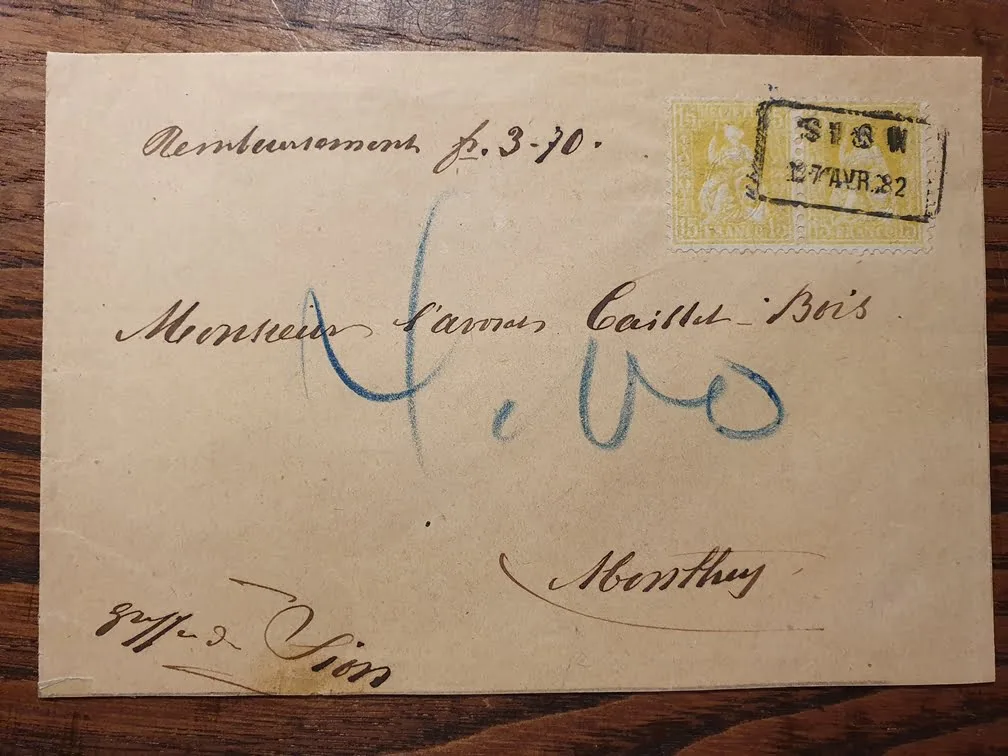 Remboursement fr. 3-70.
15 15
FRANCO
15 15
SION
AVR. 82
Monsieur l'avocat Caillet-Bois
4,00
Monthey
greffe de Sion